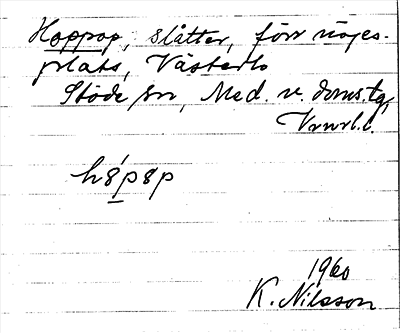 Hoppop, slåtter, förr nöjes-
plats, Västerlo
Stöde sn, Med. v. doms.tg,
Vnrl.l.
hópop
1960
K. Nilsson